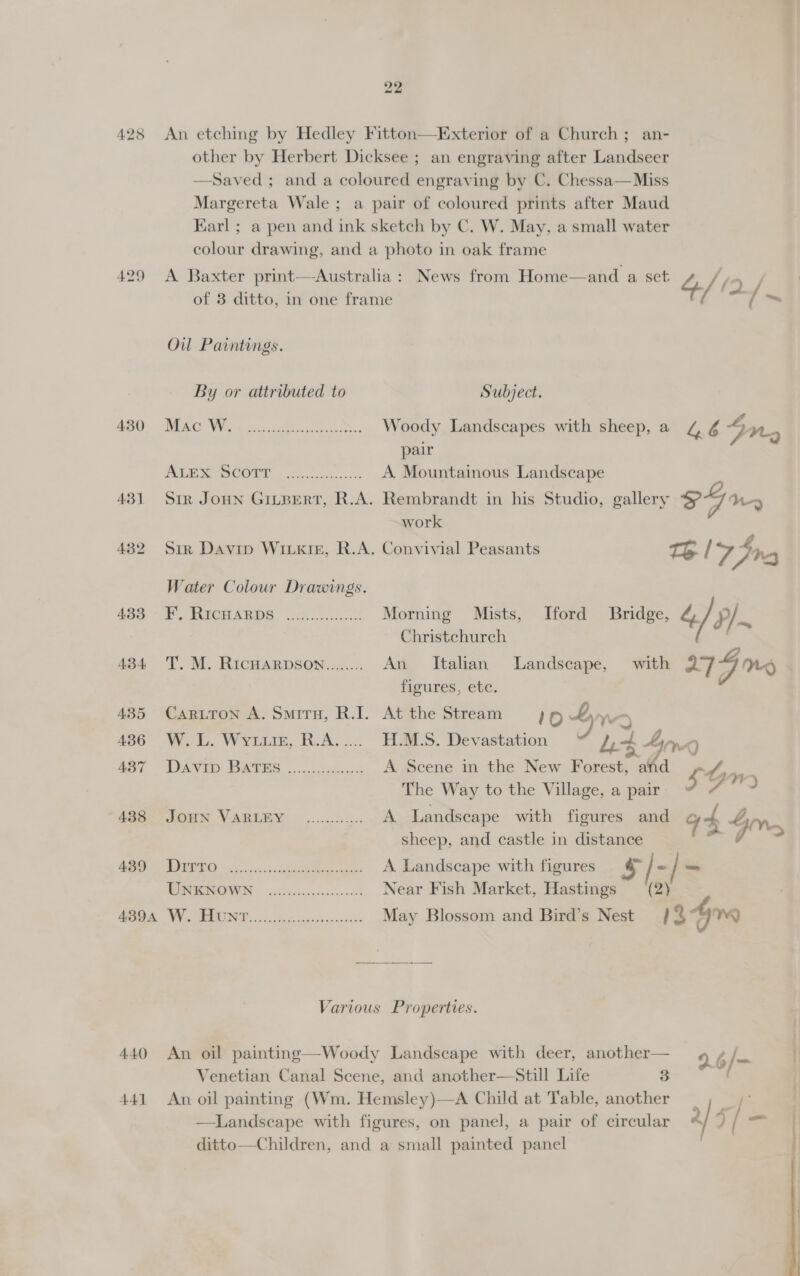 22
428 An etching by Hedley Fitton—Exterior of a Church ; an-
other by Herbert Dicksee ; an engraving after Landseer
—Saved ; and a coloured engraving by C. Chessa—Miss
Margereta Wale ; a pair of coloured prints after Maud
Earl ; a pen and ink sketch by C. W. May, a small water
colour drawing, and a photo in oak frame
429 A Baxter print—Australia : News from Home—and a set
of 3 ditto, in one frame 4/12/-
Oil Paintings.
By or attributed to Subject.
430 MAC W. .......................... Woody Landscapes with sheep, a 46 Gns
pair
ALEX SCOTT ................ A Mountainous Landscape
431 SIR JOHN GILBERT, R.A. Rembrandt in his Studio, gallery Gns
work
432 SIR DAVID WILKIE, R.A. Convivial Peasants 17 Gns
Water Colour Drawings.
433 F. RICHARDS ............... Morning Mists, Iford Bridge,
Christchurch
434 T. M. RICHARDSON........ An Italian Landscape, with 27 Gns
figures, etc.
435 CARLTON A. SMITH, R.I. At the Stream 10 Gns
436 W. L. WYLLIE, R.A. .... H.M.S. Devastation Gns
437 DAVID BATES ............... A Scene in the New Forest, and
The Way to the Village, a pair 5 Gns
438 JOHN VARLEY ............ A Landscape with figures and Gns
sheep, and castle in distance
439 DITTO .......................... A Landscape with figures /-/-
UNKNOWN ................... Near Fish Market, Hastings (2)
439A W. HUNT........................ May Blossom and Bird's Nest 13 Gns
Various Properties.
440 An oil painting—Woody Landscape with deer, another— 26/-
Venetian Canal Scene, and another—Still Life 3
441 An oil painting (Wm. Hemsley)—A Child at Table, another
—Landscape with figures, on panel, a pair of circular
ditto—Children, and a small painted panel